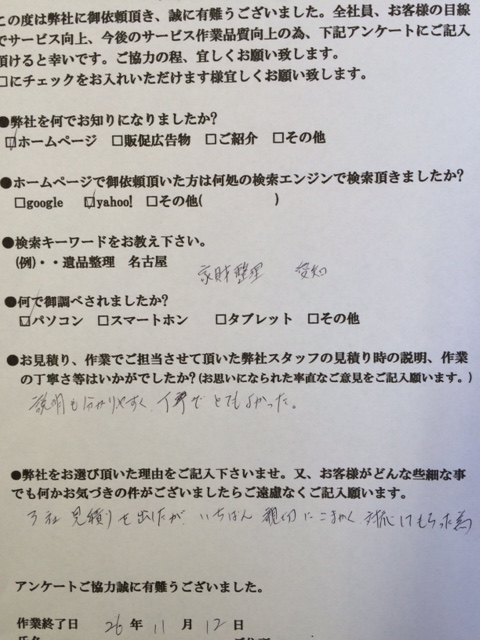 この度は弊社に御依頼頂き、誠に有難うございました。全社員、お客様の目線
でサービス向上、今後のサービス作業品質向上の為、下記アンケートにご記入
頂けると幸いです。ご協力の程、宜しくお願い致します。
□にチェックをお入れいただけます様宜しくお願い致します。
●弊社を何でお知りになりましたか?
☑ホームページ □販促広告物 □ご紹介 □その他
●ホームページで御依頼頂いた方は何処の検索エンジンで検索頂きましたか?
□google ☑yahoo! □その他( )
●検索キーワードをお教え下さい。
(例)・・遺品整理 名古屋
家財整理 愛知
●何で御調べされましたか?
☑パソコン □スマートホン □タブレット □その他
●お見積り、作業でご担当させて頂いた弊社スタッフの見積り時の説明、作業
の丁寧さ等はいかがでしたか?(お思いになられた率直なご意見をご記入願います。)
説明も分かりやすく、丁寧でとてもよかった。
●弊社をお選び頂いた理由をご記入下さいませ。又、お客様がどんな些細な事
でも何かお気づきの件がございましたらご遠慮なくご記入願います。
3社 見積りを出したが いちばん 親切にこまかく 対応してもらった為
アンケートご協力誠に有難うございました。
作業終了日 26 年 11 月 12 日